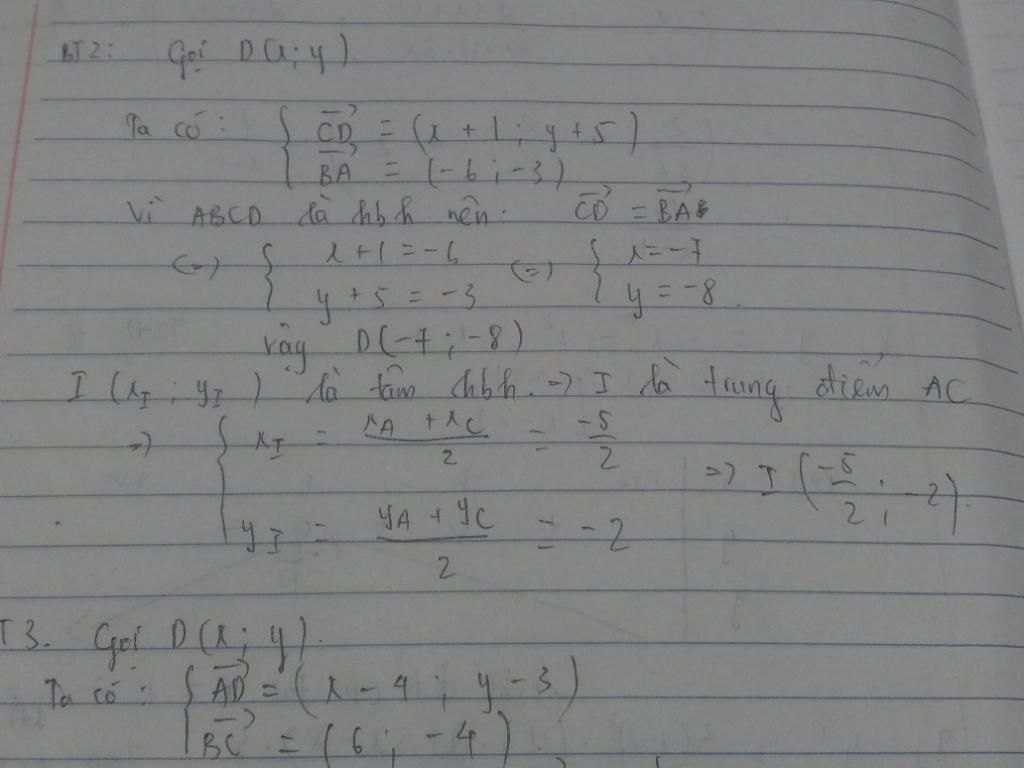 BT2: Gọi D(x; y)
Ta có: { CD→ = (x + 1; y + 5)
BA→ = (-6; -3)
Vì ABCD là hbh nên. CD→ = BA→
(=) { x + 1 = -6 (=) { x = -7
y + 5 = -3 y = -8.
Vậy D(-7; -8)
I (x_I; y_I) là tâm hbh. => I là trung điểm AC
=> { x_I = (x_A + x_C)/2 = -5/2 => I (-5/2; -2).
y_I = (y_A + y_C)/2 = -2
T3. Gọi D(x; y).
Ta có: { AD→ = (x - 4; y - 3)
BC→ = (6; -4)